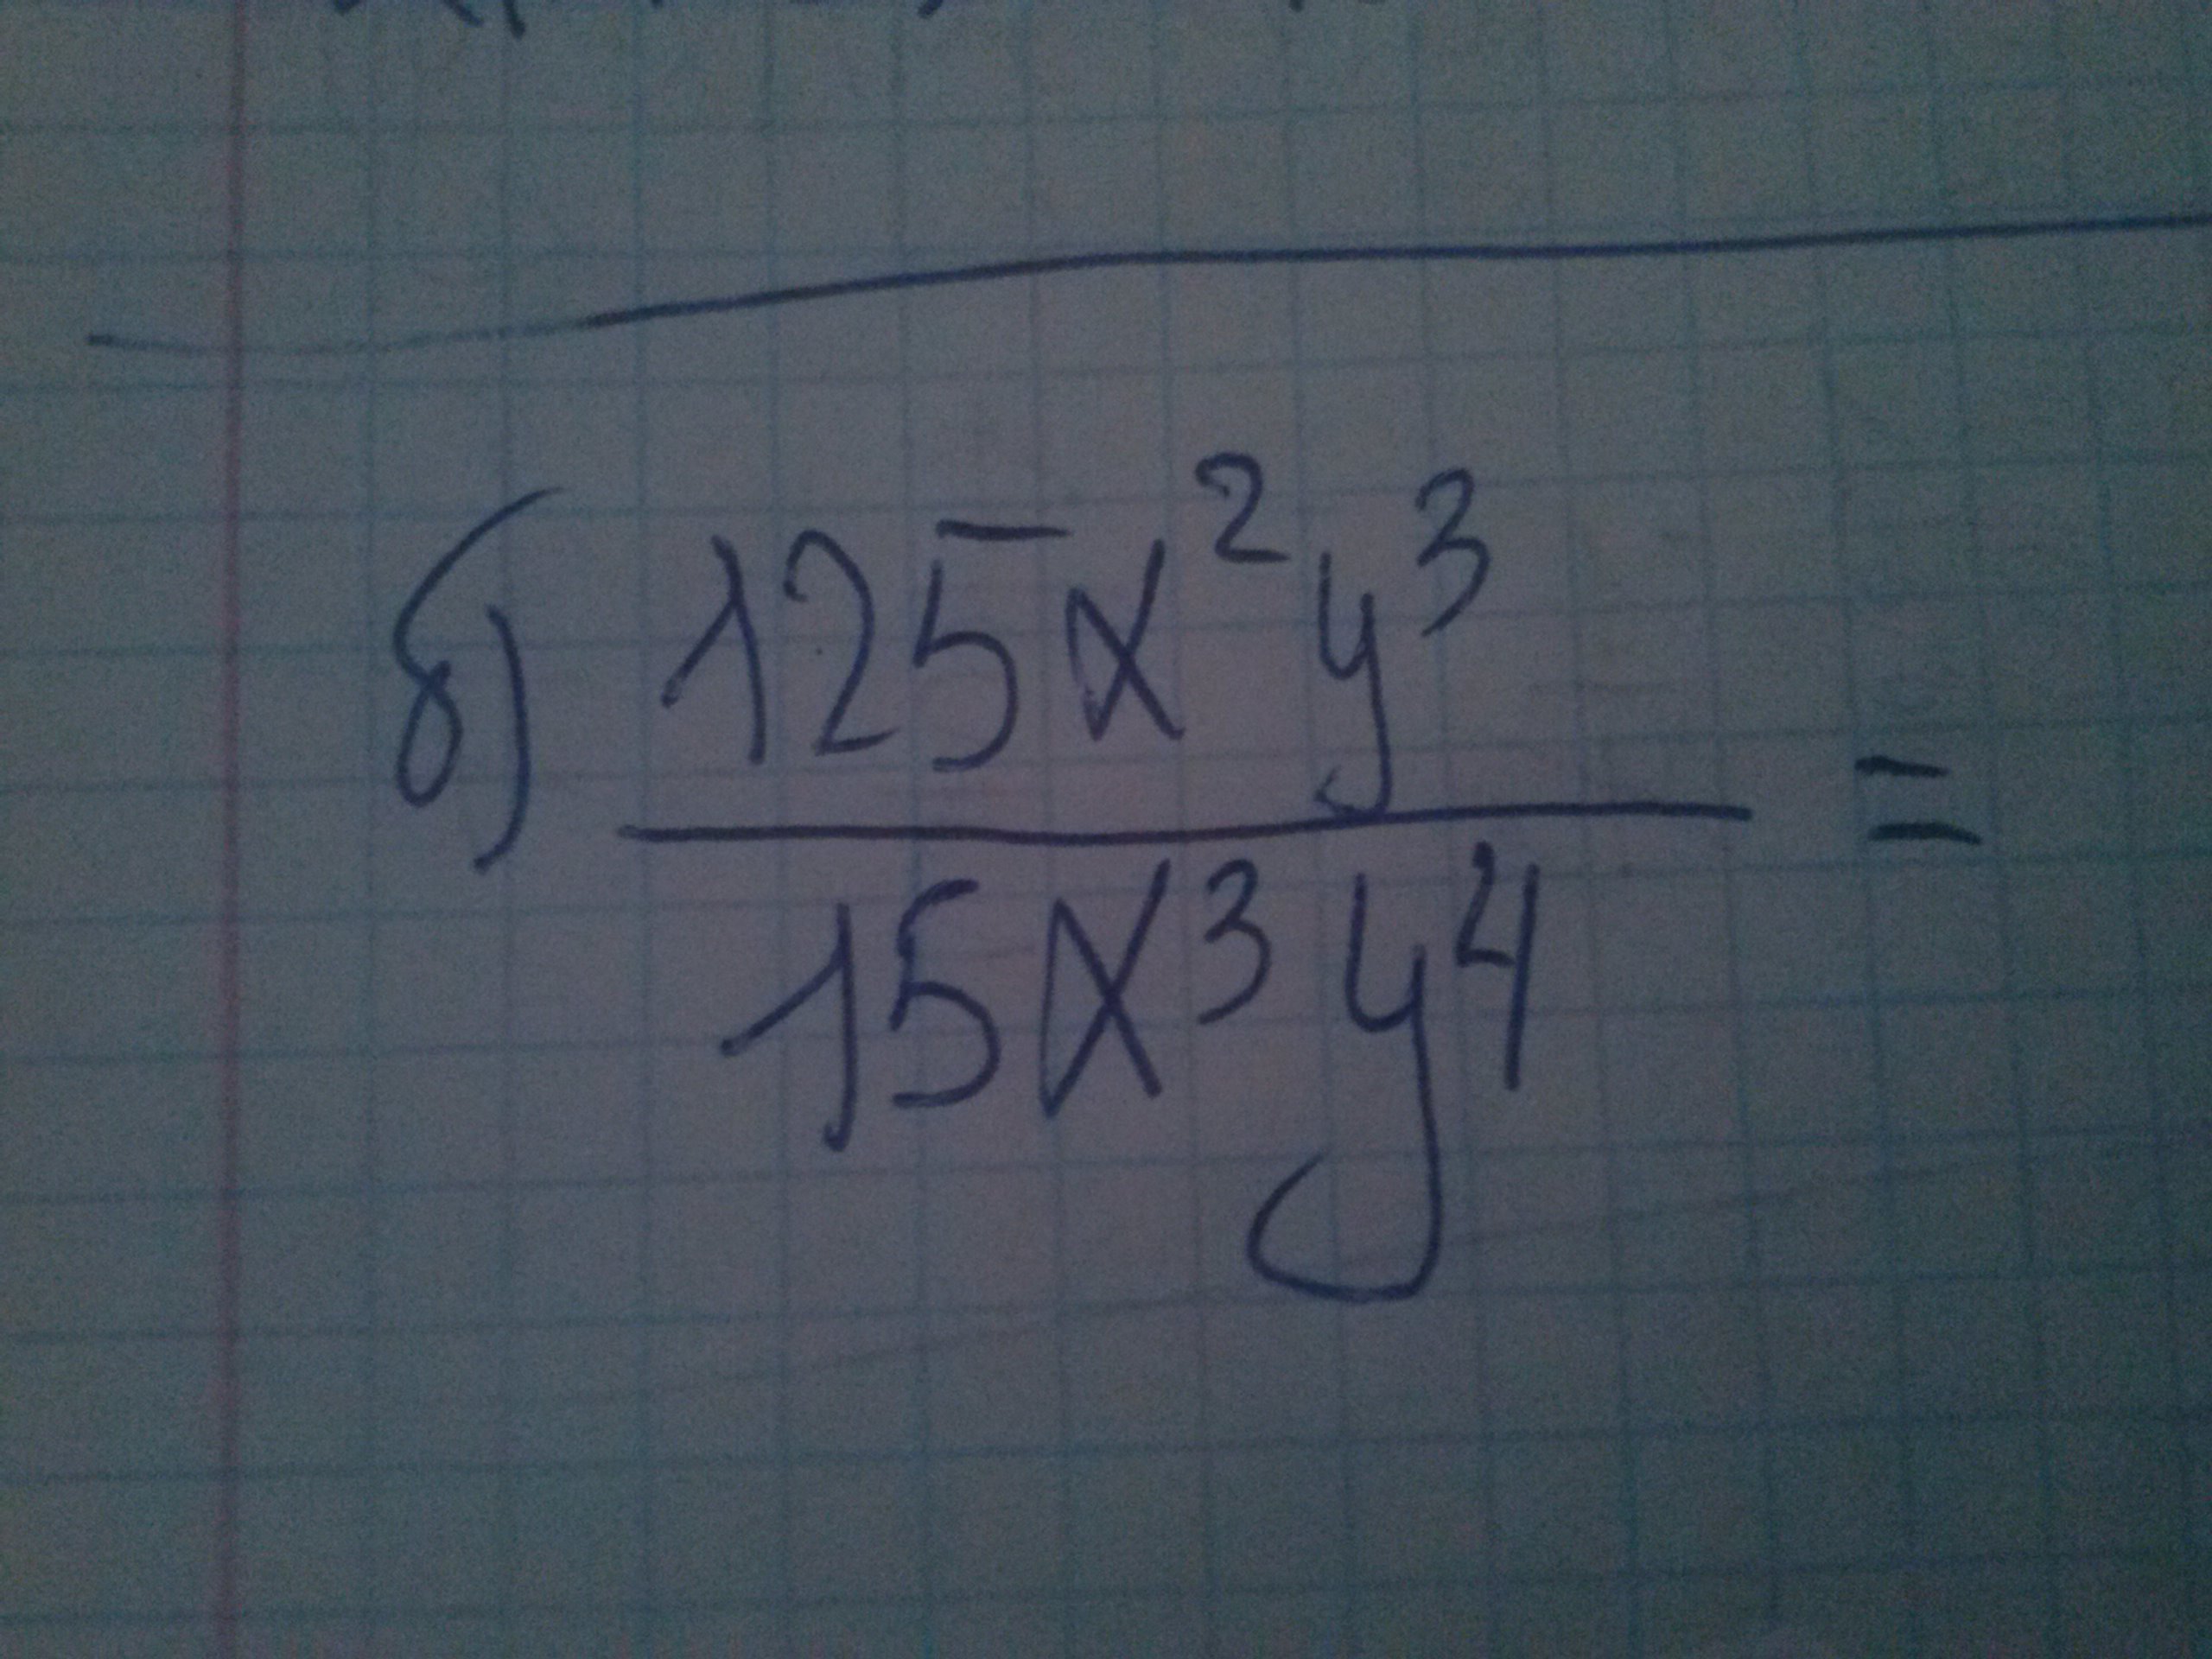 б) 125x²y³
15x³y⁴ =